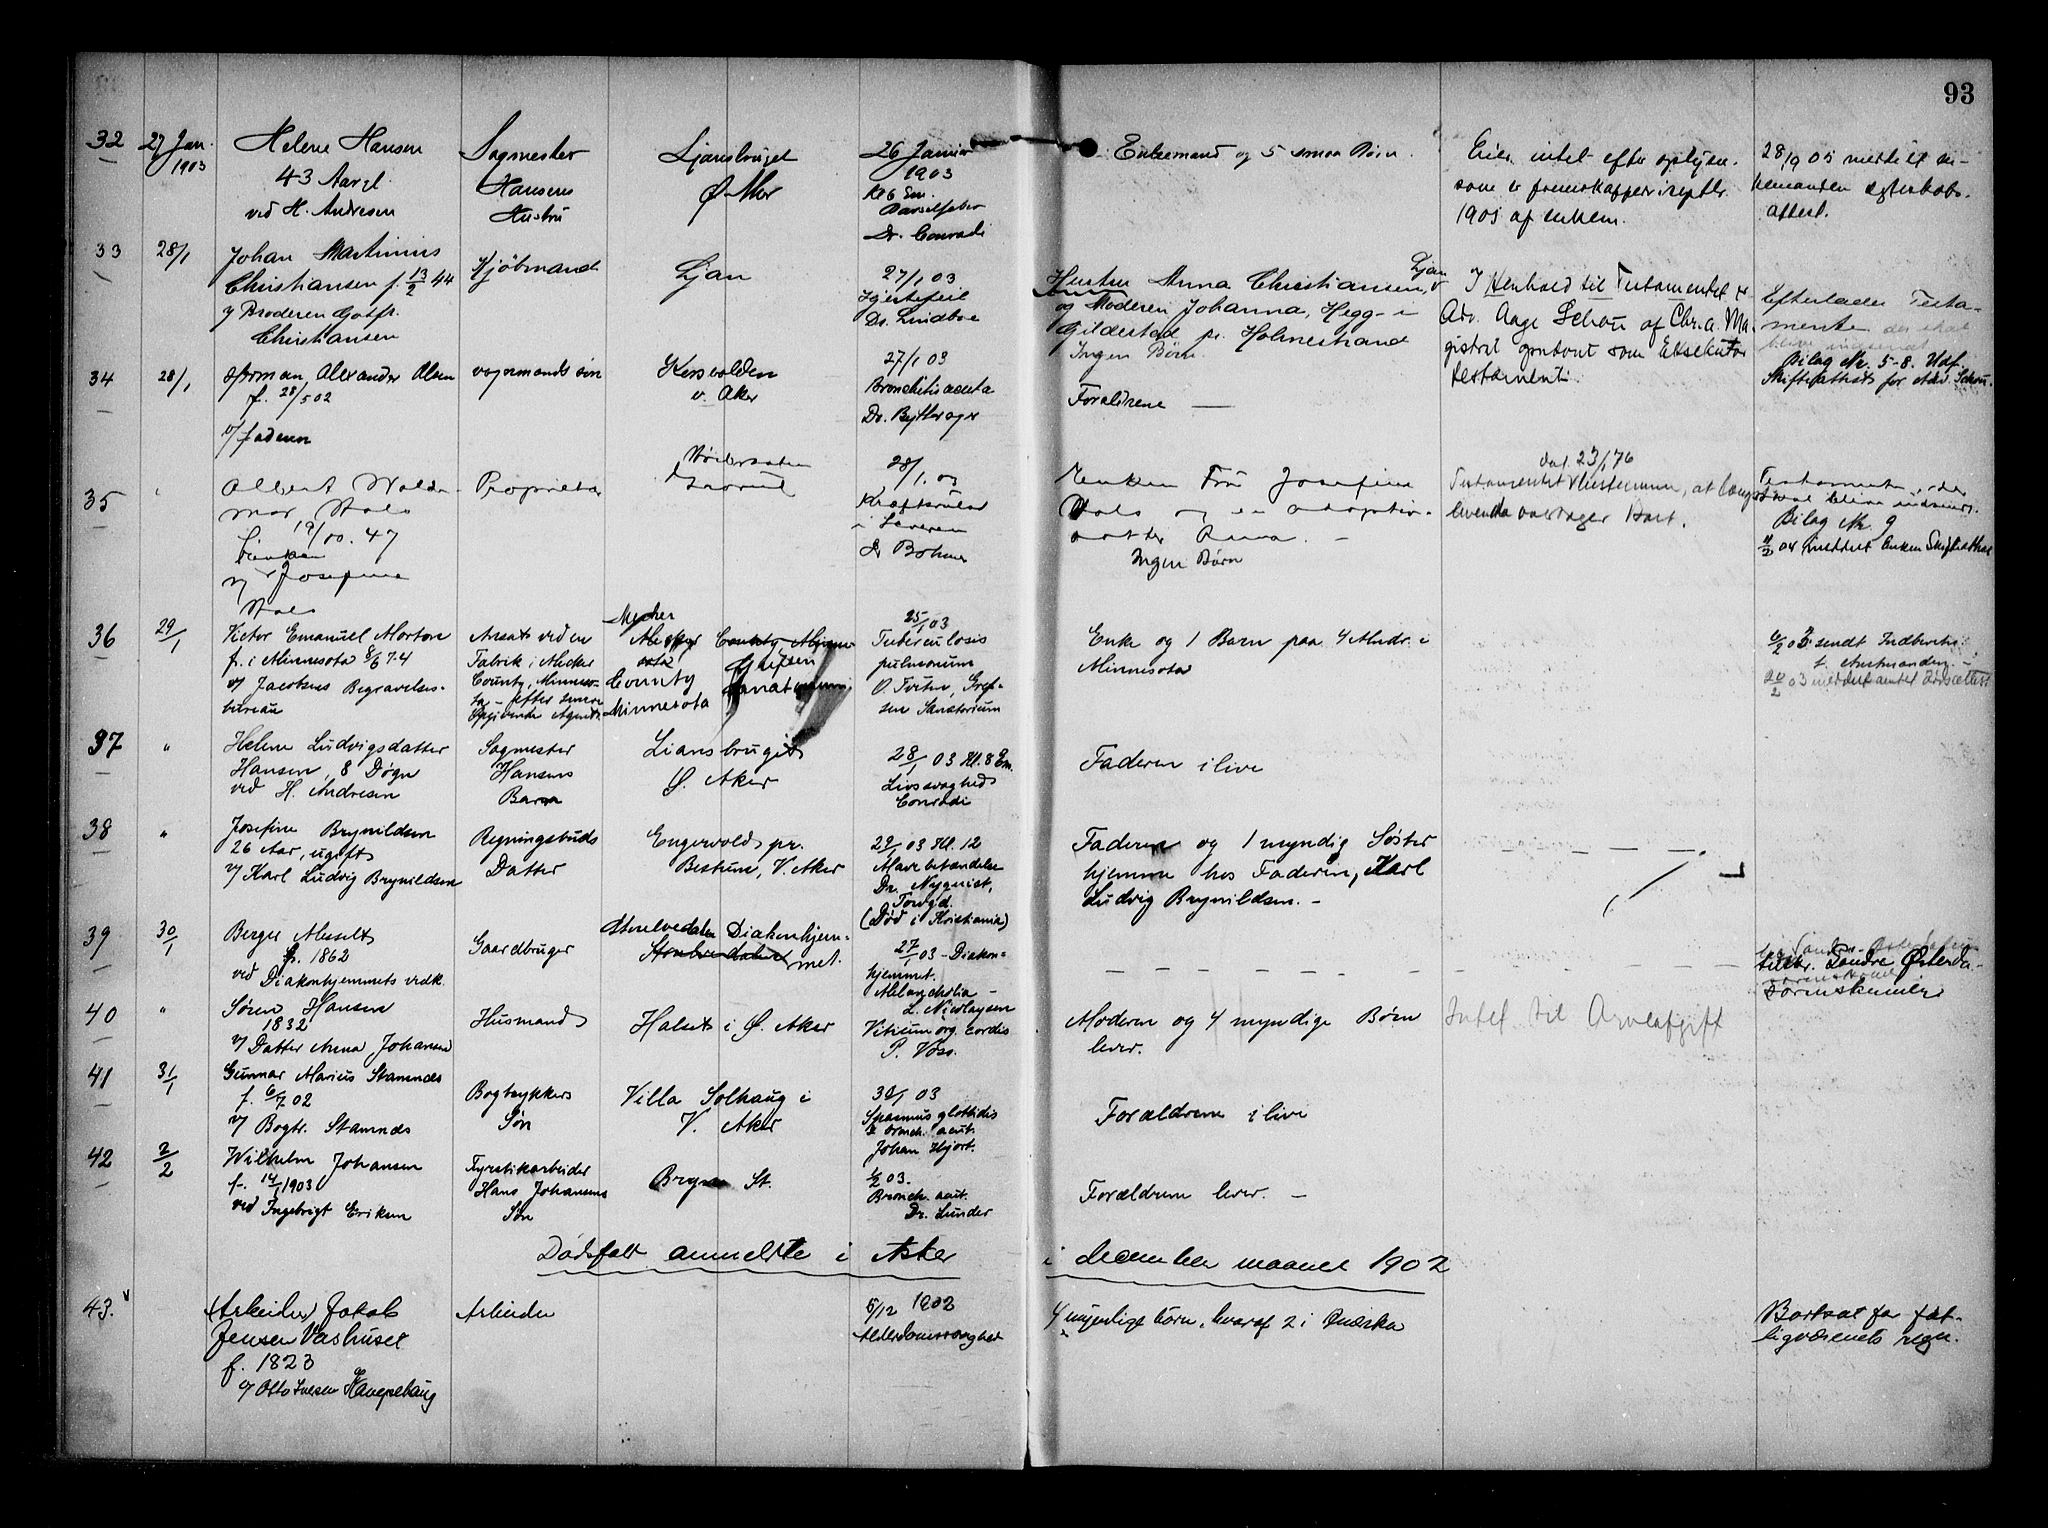 93
32
27 Jan.
1903
Helene Hansen
43 Aar gl.
ved H. Andresen
Sagmester
Hansens
Hustru
Ljansbruget
Ø. Aker
26 Januar
1903
Kl 6 Em.
Barselfeber
Dr. Conradi
Enkemand og 5 smaa Børn.
Eier intet efter oplysn.
som er fremskaffet i septbr.
1905 af enkem.
28/9 05 meddelt en-
kemanden ægteskabs-
attest.
33
28/1
Johan Martinius
Christiansen f. 13/2 44
v/ Broderen Gotfr.
Christiansen
Kjøbmand
Ljan
27/1 03
Hjertefeil
Dr. Lindboe
Hustru Anna Christiansen, Ljan
og Moderen Johanna, Hegg i
Gildestad pr. Holmestrand
Ingen Børn.
I Henhold til Testamentet er
Adv. Aage Schou af Chr.a. Ma-
gistrat opnævnt som Eksekutor
testamenti.
Efterlader Testa-
mente der skal
blive indsendt
Bilag Nr. 5-8. Udf.
Skifteattest for Adv. Schou.
34
28/1
Herman Alexander Olsen
f. 28/5 02
v/ faderen
vognmands søn
Korsvolden
v. Aker
27/1 03
Bronchitis acuta
Dr. Bytteager
Forældrene —
35
"
Albert Walde-
mar Hals
19/10. 47
Enken
v/ Josefine
Hals
Proprietær
28/1. 03
Kræftsvulst
i Leveren
Dr Bohmer
Enken Fru Josefine
Hals og en adoptiv-
datter Anna. —
Ingen Børn
dat. 23/1 76
Testamentet bestemmer, at længst-
levende overtager Boet.
Testament, der
skal blive indsendt.
Bilag Nr. 9
11/2 04 meddelt Enken Skifteattest
36
29/1
Victor Emanuel Morton
f. i Minnesota 8/6 74
v/ Jacobsens Begravelses-
bureau
Ansat ved en
Fabrik i Meeker
County, Minneso-
ta – efter senere
Opgivende Agent.
Meeker
County
Minnesota
Grefsen
Sanatorium
25/1 03
Tuberculosis
pulmonum
O Tvetn, Gref-
sen Sanatorium
Enke og 1 Barn paa 4 Mndr. i
Minnesota
6/2 03 sendt Indberetn.
t. Amtmanden —
20/2 03 meddelt amtet Dødsattest
37
"
Helene Ludvigsdatter
Hansen, 8 Døgn
ved H. Andresen
Sagmester
Hansens
Barn
Liansbruget
Ø. Aker
28/1 03 Kl. 8 Em.
Livssvaghed
Conradi
Faderen ilive
38
"
Josefine Brynildsen
26 Aar, ugift
v/ Karl Ludvig Brynildsen
Regningsbuds
Datter
Engervold pr.
Bestum, V. Aker
29/1 03 Kl. 12
Mavebetændelse
Dr. Nyquist,
Torvgd.
(Død i Kristiania)
Faderen og 1 myndig Søster
hjemme hos Faderen, Karl
Ludvig Brynildsen. —
39
30/1
Berger Messelt
f. 1862
ved Diakonhjemmets vedk.
Gaardbruger
Storelvedalen
Diakonhjem-
met.
27/1 03 – Diakon-
hjemmet.
Melancholia —
L. Nicolaysen
tilskr. Søndre Østerda-
lens
sorenskriveri
40
"
Søren Hansen
1832
v/ Datter Anna Johansen
Husmand
Halset i Ø. Aker
Vitium org. cordis
P. Voss.
Moderen og 4 myndige Børn
lever.
Intet til Arveafgift
41
31/1
Gunnar Marius Stamnes
f. 6/7 02
v/ Bogtr. Stamnes
Bogtrykkers
Søn
Villa Solhaug i
V. Aker
30/1 03
Spasmus glottidis
& bronch. acut.
Johan Hjort.
Forældrene ilive
42
2/2
Wilhelm Johansen
f. 14/1 1903
ved Ingebrigt Eriksen
Fyrstikarbeider
Hans Johansens
Søn
Bryn St.
1/2 03.
Bronch. acut.
Dr. Lunder
Forældrene lever. —
Dødsfald anmeldte i Asker i december maaned 1902
43.
(Arbeider) Jakob
Jensen Vashuset
f. 1823
v/ Otto Iversen Hampehaug
Arbeider
5/12 1902
Alderdomssvaghed
4 myndige børn, hvoraf 2 i Amerika
Bortsat for fat-
tigvæsenets regn.